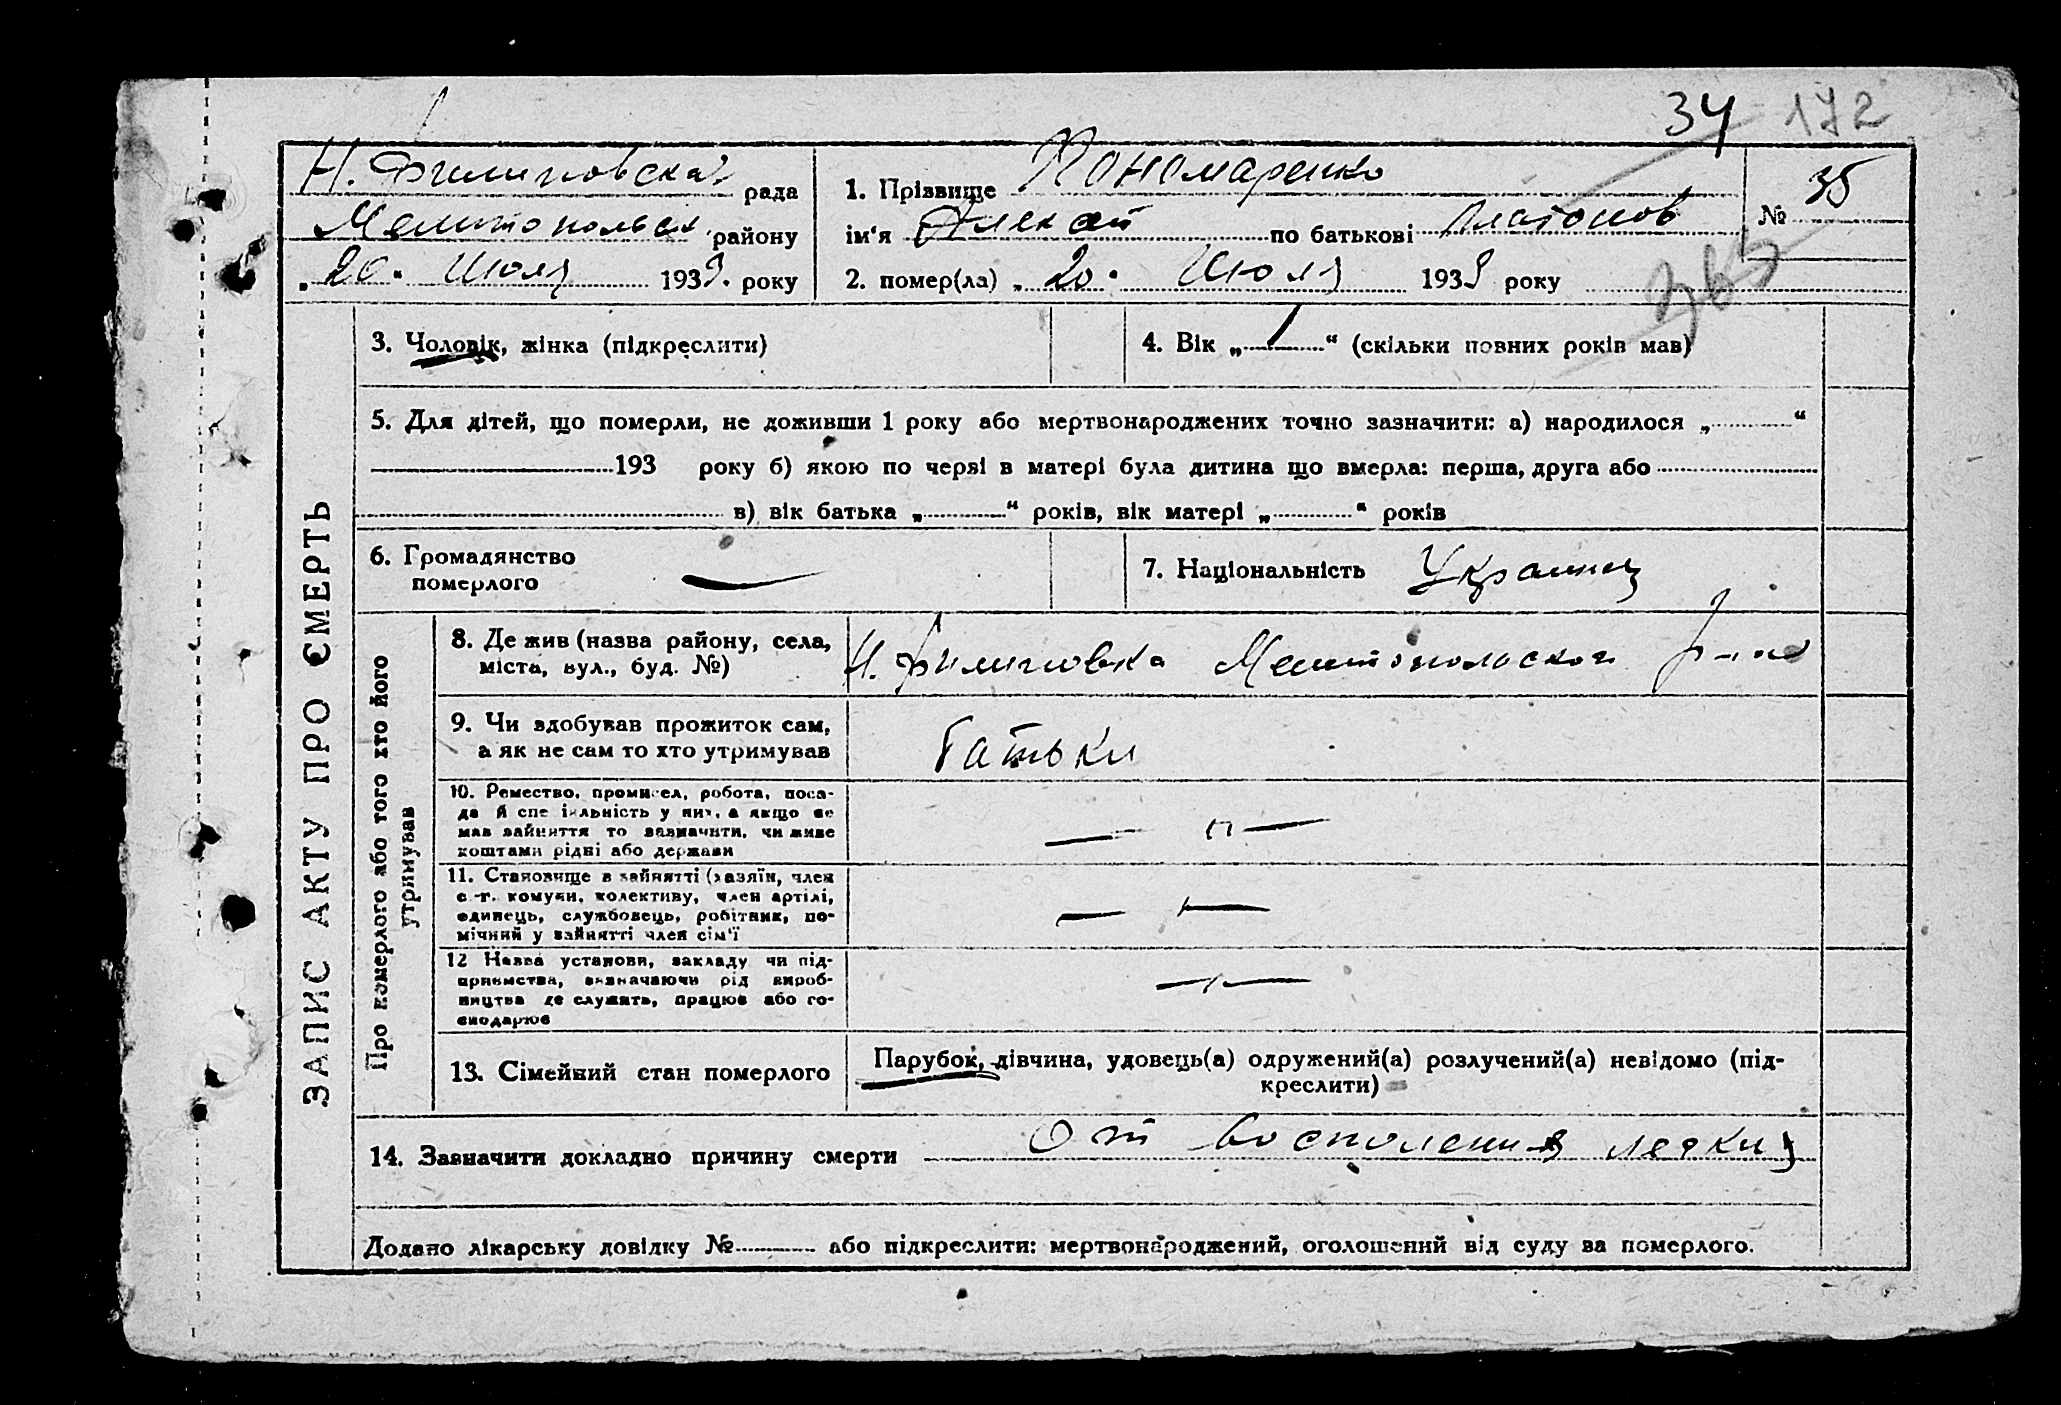 34 172
Н. Филиповска рада
Мелитопольск. району
„20" Июля 1933. року
1. Прізвище Пономаренко
ім'я Алексей по батькові Платонов
2. помер(ла) „20" Июля 1933 року
№ 35
365
ЗАПИС АКТУ ПРО СМЕРТЬ
3. Чоловік, жінка (підкреслити)
4. Вік „1“ (скільки повних років мав)
5. Для дітей, що померли, не доживши 1 року або мертвонароджених точно зазначити: а) народилося „ “
193 року б) якою по черзі в матері була дитина що вмерла: перша, друга або
в) вік батька „ “ років, вік матері „ “ років
6. Громадянство
померлого —
7. Національність Украинец
Про померлого або того хто його
утримував
8. Де жив (назва району, села,
міста, вул., буд. №)
Н. Филиповка Мелитопольского р-на
9. Чи здобував прожиток сам,
а як не сам то хто утримував
батьки
10. Ремество, промисел, робота, поса-
да й спеціяльність у них, а якщо не
мав зайняття то зазначити, чи живе
коштами рідні або держави
— п —
11. Становище в зайнятті (хазяїн, член
с.-г. комуни, колективу, член артілі,
одинець, службовець, робітник, по-
мічний у зайнятті член сім'ї
12 Назва установи, закладу чи під-
приємства, визначаючи рід вироб-
ництва де служать, працює або го-
сподарює
13. Сімейний стан померлого
Парубок, дівчина, удовець(а) одружений(а) розлучений(а) невідомо (під-
креслити)
14. Зазначити докладно причину смерти От восполения легких
Додано лікарську довідку № або підкреслити: мертвонароджений, оголошенній від суду за померлого.